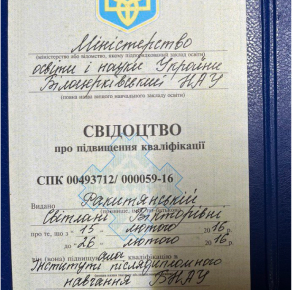 Міністерство
(міністерство або відомство, якому підпорядкований заклад освіти)
освіти і науки України
Білоцерківський НАУ
(повна назва вищого навчального закладу освіти)
СВІДОЦТВО
про підвищення кваліфікації
СПК 00493712/ 000059-16
Видано Ракитянській
Світлані Вікторівні
про те, що з 15 лютого 2016р.
до 26 лютого 2016р.
він (вона) підвищ
Інституті післядипломного
навчання БНАУ